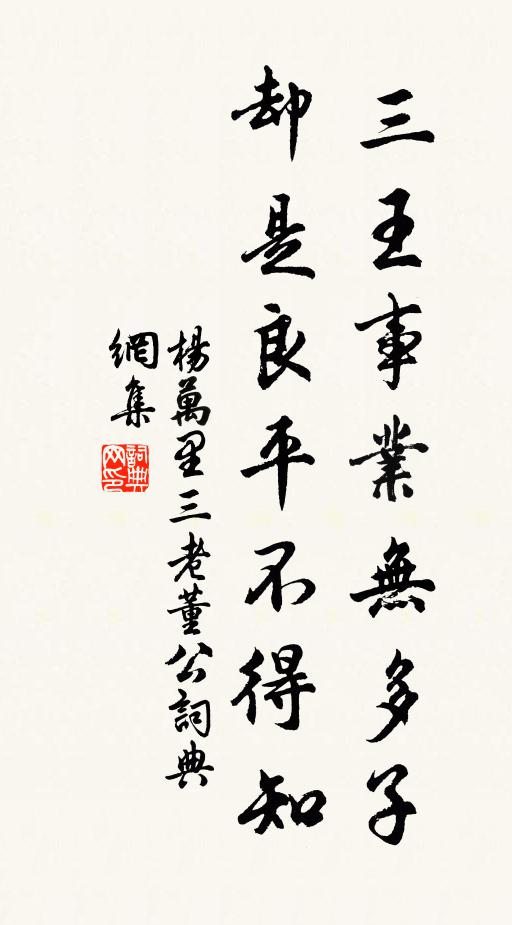 三王事業無多子
却是良平不得知
楊萬里三老董公詞典
網集
詞典
网印